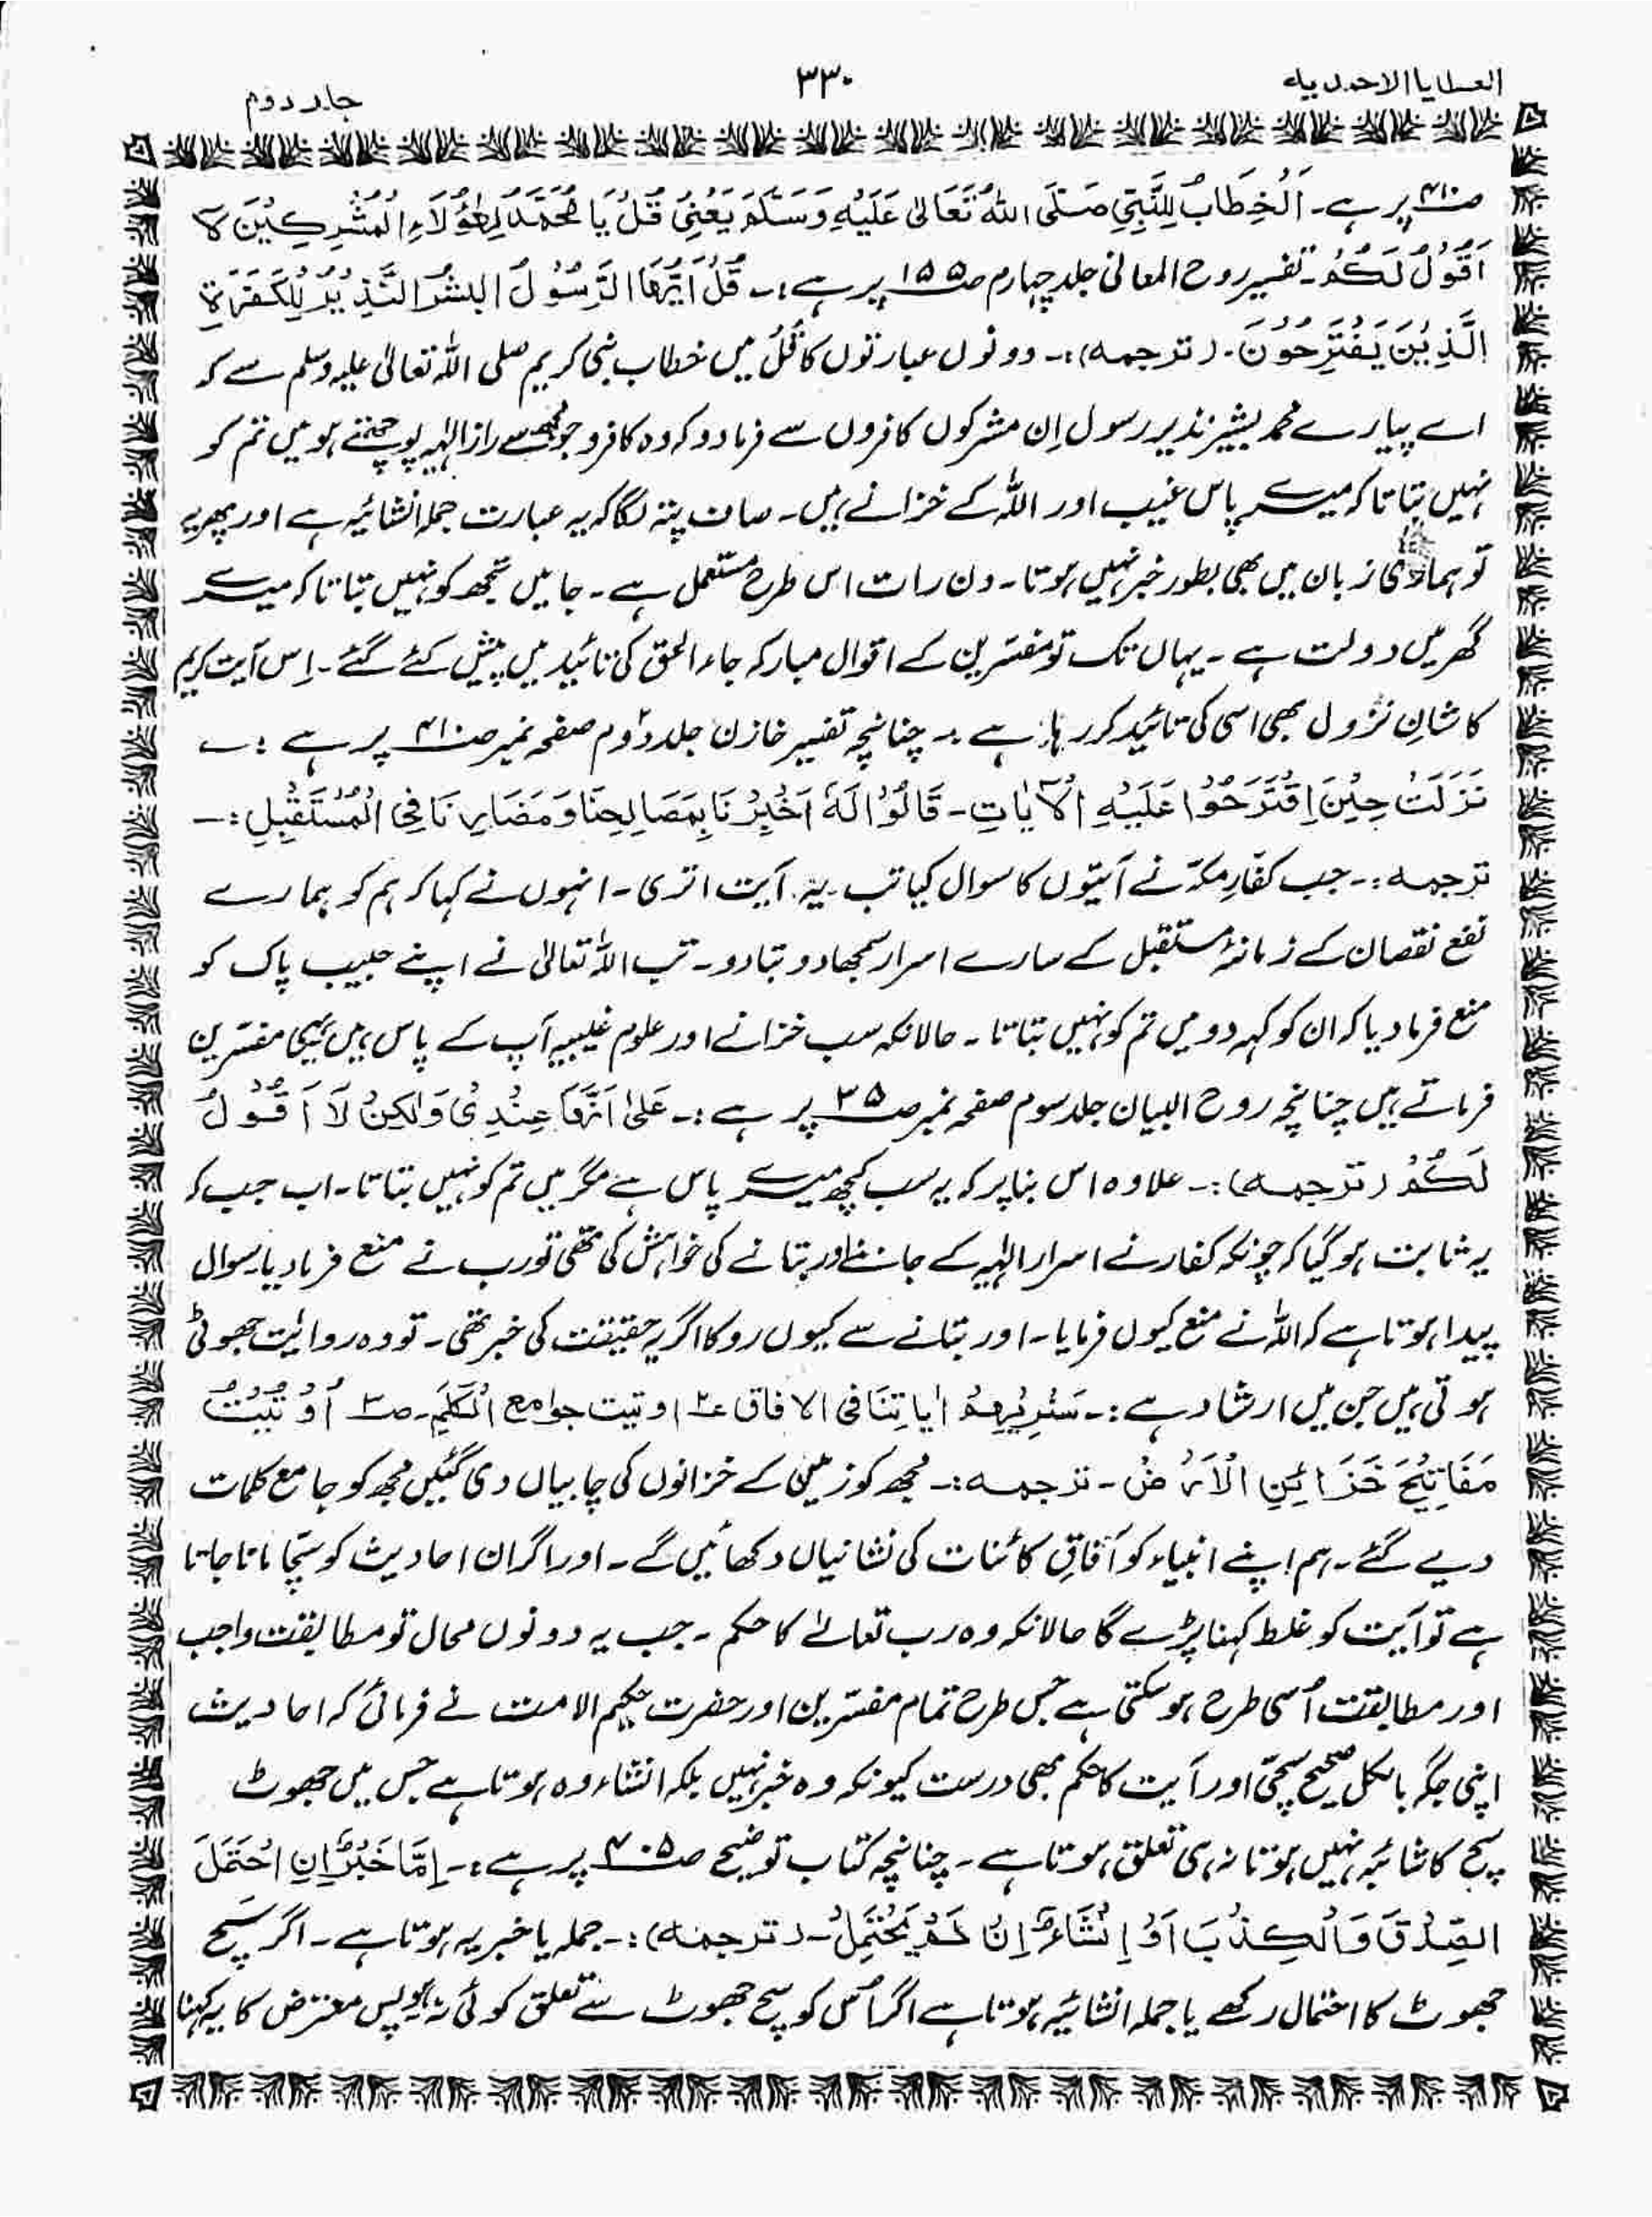 العطایا الاحمدیہ
۳۳۰
جلد دوم
صـ۴۱۰ پر ہے۔ اَلْخِطَابُ لِلنَّبِیِّ صَلَّی اللّٰہُ تَعَالٰی عَلَیْہِ وَسَلَّمَ یَعْنِیْ قُلْ یَا مُحَمَّدُ لِھٰؤُلَاءِ الْمُشْرِکِیْنَ لَا
اَقُوْلُ لَکُمْ۔ تفسیر روح المعانی جلد چہارم صـ۱۵۵ پر ہے:۔ قُلْ اَیُّھَا الرَّسُوْلُ البشرُ النَّذِیْرُ لِلْکَفَرَۃِ
الَّذِیْنَ یَقْتَرِحُوْنَ۔ (ترجمہ):۔ دونوں عبارتوں کا قُلْ میں خطاب نبی کریم صلی اللہ تعالیٰ علیہ وسلم سے کہ
اے پیارے محمد بشیر نذیر رسول اِن مشرکوں کافروں سے فرما دو کہ وہ کافرو جو مجھ سے راز الٰہیہ پوچھتے ہو میں تم کو
نہیں بتاتا کہ میرے پاس غیب اور اللہ کے خزانے ہیں۔ صاف پتہ لگا کہ یہ عبارت جملہ انشائیہ ہے اور پھر یہ
تو ہماری زبان میں بھی بطور خبر نہیں ہوتا۔ دن رات اس طرح مستعمل ہے۔ جا میں تجھ کو نہیں بتاتا کہ میرے
گھر میں دولت ہے۔ یہاں تک تو مفسّرین کے اقوال مبارکہ جاء الحق کی تائید میں پیش کئے گئے۔ اِس آیت کریم
کا شانِ نزول بھی اسی کی تائید کر رہا ہے۔ چنانچہ تفسیر خازن جلد دوم صفحہ نمبر صـ۴۱۰ پر ہے :۔
نَزَلَتْ حِیْنَ اِقْتَرَحُوْا عَلَیْہِ الْاٰیَاتِ۔ قَالُوْا لَہٗ اَخْبِرْنَا بِمَصَالِحِنَا وَمَضَارِنَا فِی الْمُسْتَقْبِلِ:۔
ترجمہ:۔ جب کفّارِ مکہّ نے آیتوں کا سوال کیا تب یہ آیت اتری۔ انہوں نے کہا کہ ہم کو ہمارے
نفع نقصان کے زمانۂ مستقبل کے سارے اسرار سمجھا دو بتا دو۔ تب اللہ تعالیٰ نے اپنے حبیب پاک کو
منع فرما دیا کہ ان کو کہہ دو میں تم کو نہیں بتاتا۔ حالانکہ سب خزانے اور علوم غیبیہ آپ کے پاس ہیں یہی مفسّرین
فرماتے ہیں چنانچہ روح البیان جلد سوم صفحہ نمبر صـ۳۵ پر ہے :۔ عَلٰی اَنَّھَا عِنْدِیْ وَلٰکِنْ لَا اَقُوْلُ
لَکُمْ (ترجمہ):۔ علاوہ اس بنا پر کہ یہ سب کچھ میرے پاس ہے مگر میں تم کو نہیں بتاتا۔ اب جب کہ
یہ ثابت ہو گیا کہ چونکہ کفار نے اسرار الٰہیہ کے جاننے اور بتانے کی خواہش کی تھی تو رب نے منع فرما دیا۔ سوال
پیدا ہوتا ہے کہ اللہ نے منع کیوں فرمایا۔ اور بتانے سے کیوں روکا اگر یہ حقیقت کی خبر تھی۔ تو وہ روائت جھوٹی
ہوتی ہیں جن میں ارشاد ہے :۔ سَنُرِیْھِمْ اٰیَاتِنَا فی الافاق ۲؎ اوتیت جوامع الْکَلِمِ۔ صـ۳ اُوْتِیْتُ
مَفَاتِیْحَ خَزَائِنِ الْاَرْضِ۔ ترجمہ:۔ مجھ کو زمین کے خزانوں کی چابیاں دی گئیں مجھ کو جامع کلمات
دیے گئے۔ ہم اپنے انبیاء کو آفاقِ کائنات کی نشانیاں دکھائیں گے۔ اور اگر ان احادیث کو سچّا مانا جاتا
ہے تو آیت کو غلط کہنا پڑے گا حالانکہ وہ رب تعالےٰ کا حکم۔ جب یہ دونوں محال تو مطابقت واجب
اور مطابقت اُسی طرح ہو سکتی ہے جس طرح تمام مفسّرین اور حضرت حکیم الامت نے فرمائی کہ احادیث
اپنی جگہ بالکل صحیح سچّی اور آیت کا حکم بھی درست کیونکہ وہ خبر نہیں بلکہ انشاء وہ ہوتا ہے جس میں جھوٹ
سچ کا شائبہ نہیں ہوتا نہ ہی تعلق ہوتا ہے۔ چنانچہ کتاب توضیح صـ۴۰۵ پر ہے :۔ اِمَّا خَبْرٌ اِنِ احْتَمَلَ
الصِّدْقَ وَالْکِذْبَ اَوْ اِنْشَاءٌ اِنْ لَمْ یَحْتَمِلْ۔ (ترجمہ):۔ جملہ یا خبریہ ہوتا ہے۔ اگر سچ
جھوٹ کا احتمال رکھے یا جملہ انشائیہ ہوتا ہے اگر اُس کو سچ جھوٹ سے تعلق کوئی نہ ہو پس معترض کا یہ کہنا